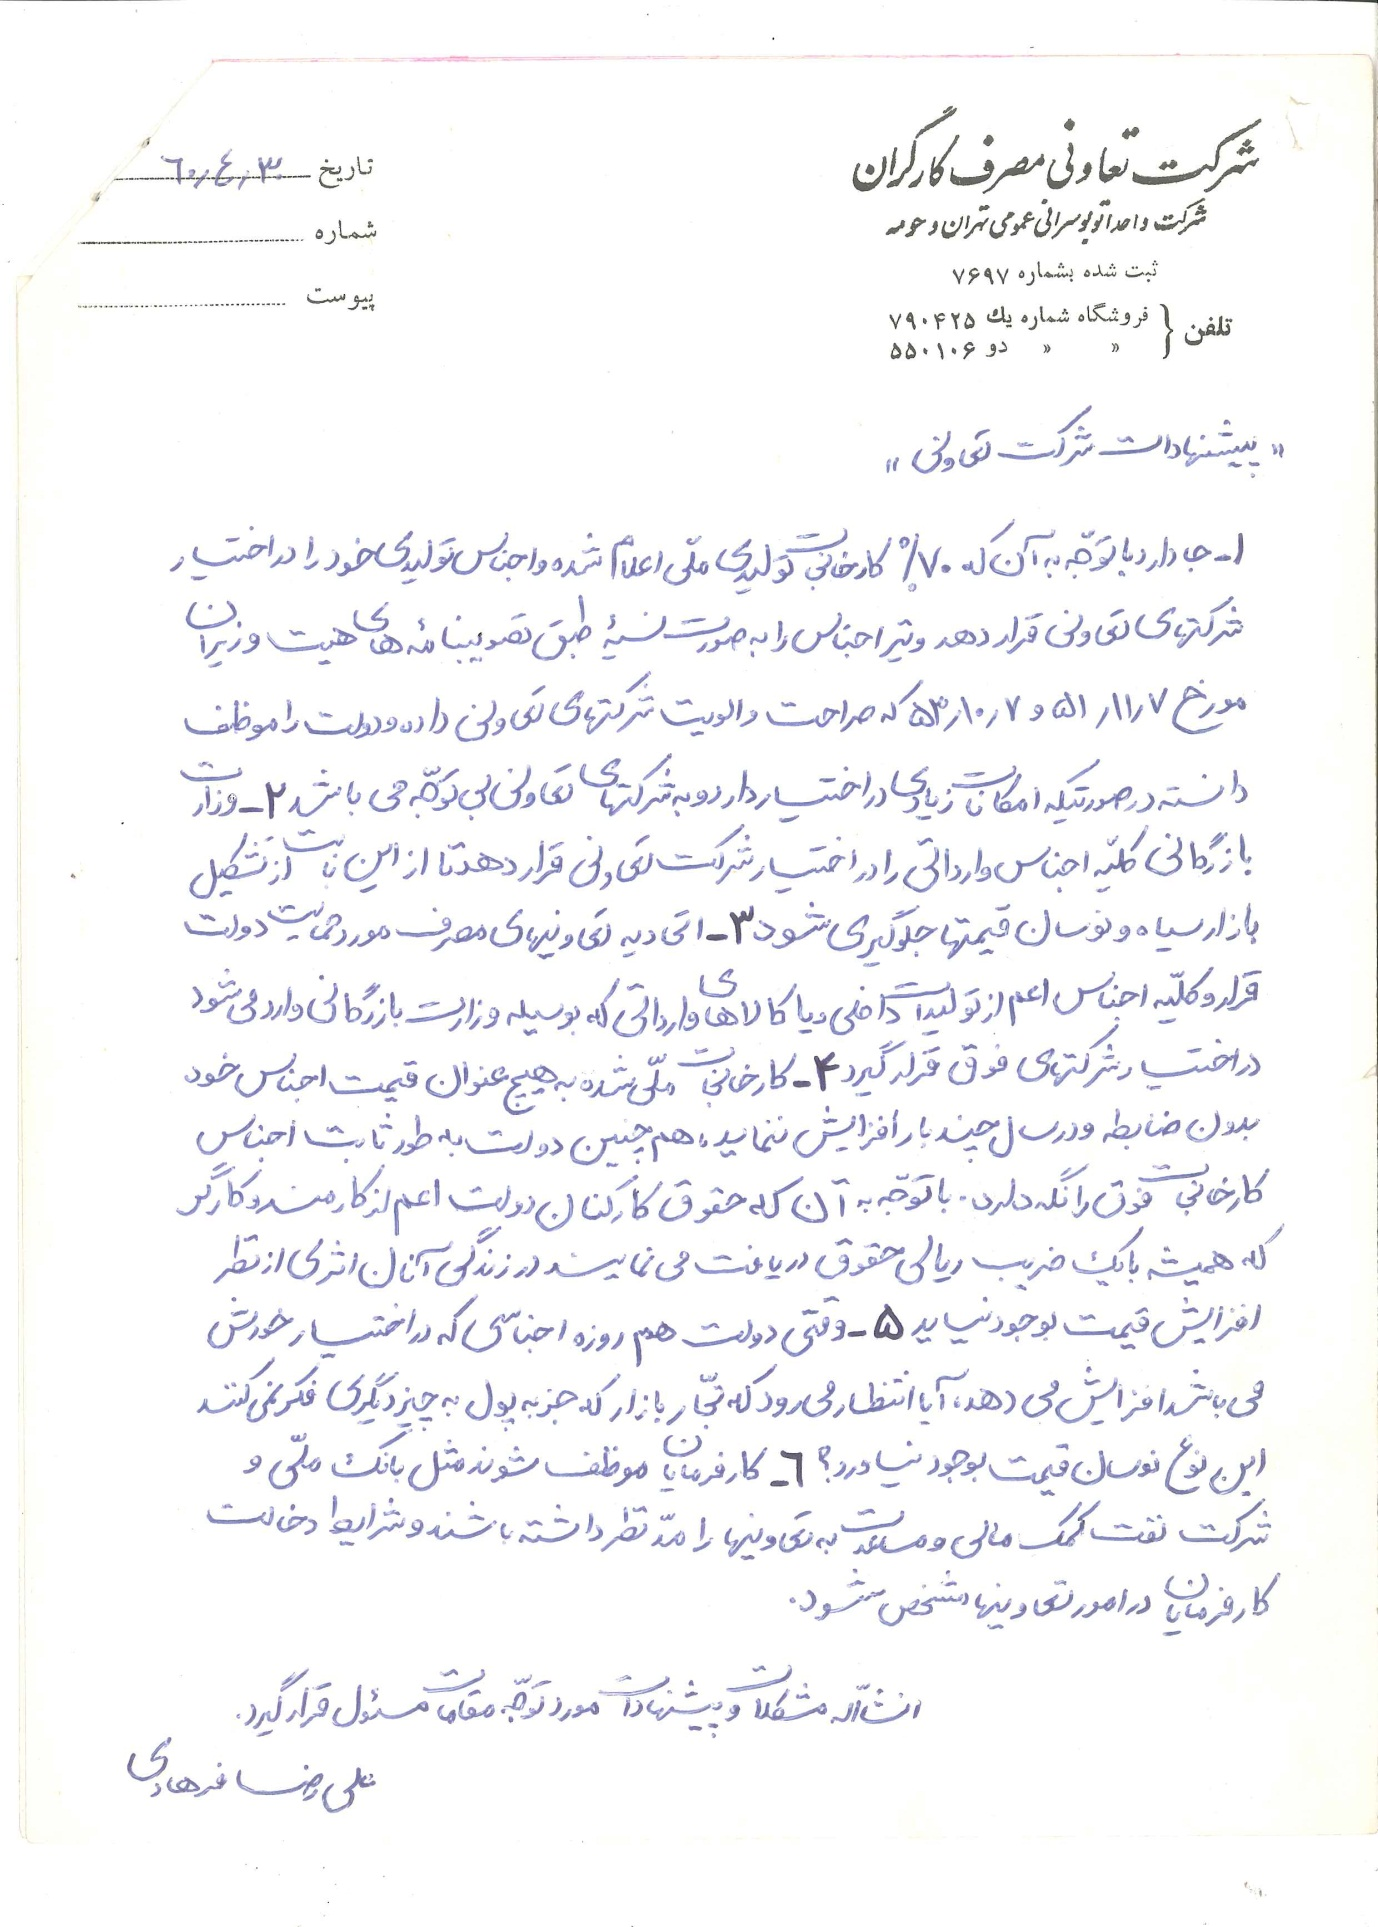 شرکت تعاونی مصرف کارگران
شرکت واحد اتوبوسرانی عمومی تهران و حومه
ثبت شده بشماره ۷۶۹۷
تلفن { فروشگاه شماره یك ۷۹۰۴۲۵
« « دو ۵۵۰۱۰۶
تاریخ ۶۰٫۴٫۳۰
شماره
پیوست
" پیشنهادات شرکت تعاونی "
۱- جا دارد با توجّه به آن که ۷۰٪ کارخانجات تولیدی ملّی اعلام شده و اجناس تولیدی خود را در اختیار
شرکتهای تعاونی قرار دهد و نیز اجناس را به صورت نسیۀ طبق تصویبنامه های هیت وزیران
مورخ ۵۱٫۱۱٫۷ و ۵۳٫۱۰٫۷ که صراحت و الویت شرکتهای تعاونی داده و دولت را موظف
دانسته در صورتیکه امکانات زیادی در اختیار دارد و به شرکتهای تعاونی بی توجّه می باشد ۲- وزارت
بازرگانی کلیّه اجناس وارداتی را در اختیار شرکت تعاونی قرار دهد تا از این بابت از تشکیل
بازار سیاه و نوسان قیمتها جلوگیری شود ۳- اتحادیه تعاونیهای مصرف مورد حمایت دولت
قرار و کلّیه اجناس اعم از تولیدات داخلی و یا کالاهای وارداتی که بوسیله وزارت بازرگانی وارد می شود
در اختیار شرکتهای فوق قرار گیرد ۴- کارخانجات ملّی شده به هیچ عنوان قیمت اجناس خود
بدون ضابطه و در سال چند بار افزایش ننماید، هم چنین دولت به طور ثابت اجناس
کارخانجات فوق را نگه دارد. با توجّه به آن که حقوق کارکنان دولت اعم از کارمند و کارگر
که همیشه با یک ضریب ریالی حقوق دریافت می نمایند در زندگی آنان اثری از نظر
افزایش قیمت بوجود نیاید ۵- وقتی دولت هم روزه اجناسی که در اختیار خودش
می باشد افزایش می دهد، آیا انتظار می رود که تجّار بازار که جز به پول به چیز دیگری فکر نمی کنند
این نوع نوسان قیمت بوجود نیاورد؟ ۶- کارفرمایان موظف شوند مثل بانک ملّی و
شرکت نفت کمک مالی و مساعدت به تعاونیها را مدّ نظر داشته باشند و شرایط دخالت
کارفرمایان در امور تعاونیها مشخص شود.
انشاّاله مشکلات و پیشنهادات مورد توجّه مقامات مسئول قرار گیرد.
علی رضا فرهادی